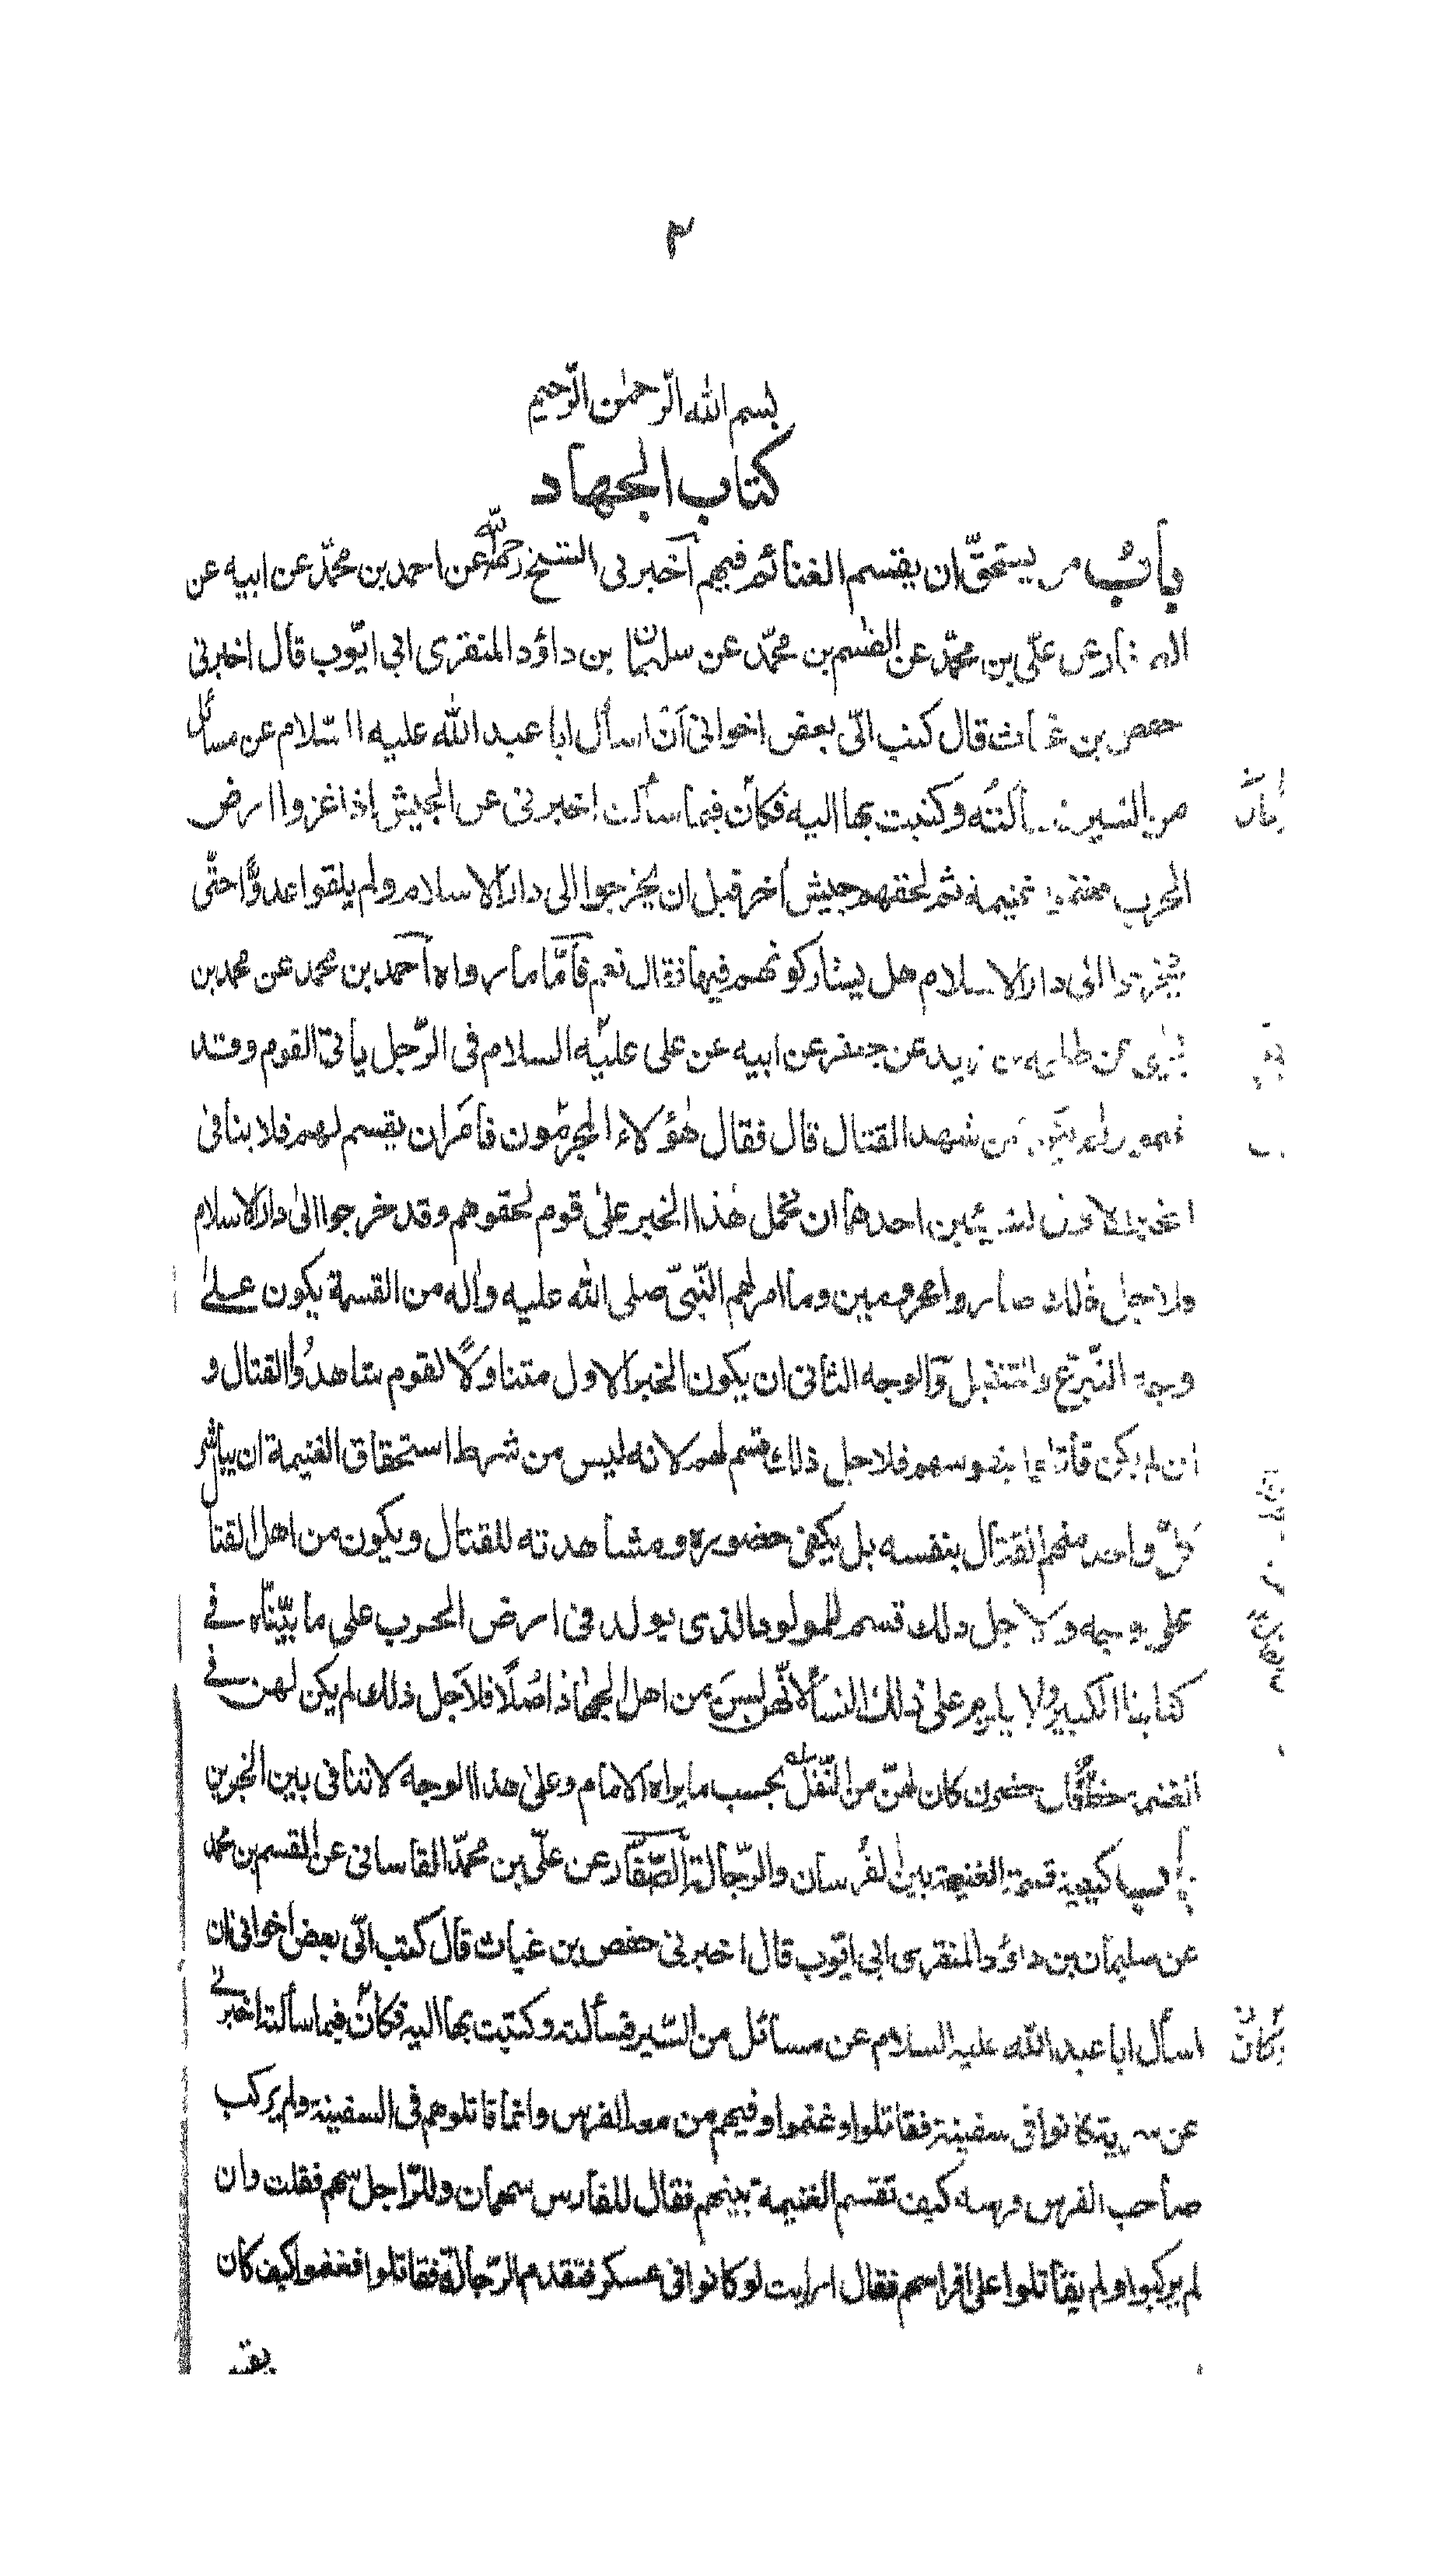 ٢
بسم الله الرحمن الرحيم
كتاب الجهاد
باب من يستحقّ ان يقسم الغنائم فيهم اخبرنى الشيخ رحمه الله عن احمد بن محمّد عن ابيه عن
الصفار عن علىّ بن محمّد عن القسم بن محمّد عن سليمان بن داؤد المنقرى ابى ايّوب قال اخبرنى
حفص بن غياث قال كتب الىّ بعض اخوانى ان اسأل ابا عبد الله عليه السّلام عن مسائل
من السير فسألته وكتبت بها اليه فكان فيما سألت اخبرنى عن الجيش إذا غزوا ارض
الحرب فغنموا غنيمة ثم لحقهم جيش اخر قبل ان يخرجوا الى دار الاسلام ولم يلقوا عدوًّا حتّى
يخرجوا الى دار الاسلام هل يشاركونهم فيها فقال نعم فأمّا ما رواه احمد بن محمد عن محمد بن
يحيى عن طلحة بن زيد عن جعفر عن ابيه عن على عليه السلام فى الرّجل يأتى القوم وقد
غنموا ولم يكن ممن شهد القتال قال فقال هؤلاء المحرومون فأمر ان يقسم لهم فلا ينافى
الخبر الاول لشيئين احدهما ان نحمل هذا الخبر على قوم لحقوهم وقد خرجوا الى دار الاسلام
ولاجل ذلك صاروا محرومين وما امر لهم النّبىّ صلى الله عليه واله من القسمة يكون على
وجه التّبرّع والتنفيل والوجه الثانى ان يكون الخبر الاول متناولًا لقوم شاهدوا القتال و
ان لم يكن قاتلوا بنفوسهم فلاجل ذلك قسم لهم لانه ليس من شرط استحقاق الغنيمة ان يباشر
كلّ واحد منهم القتال بنفسه بل يكفى حضوره ومشاهدته للقتال ويكون من اهل القتال
على وجه ولاجل ذلك قسم للمولود الذى يولد فى ارض الحرب على ما بيّنّاه فى
كتابنا الكبير ولا يلزم على ذلك النساء لانّهن ليس من اهل الجهاد اصلًا فلاجل ذلك لم يكن لهن فى
الغنيمة حظّ وان حضرن كان لهنّ من النّفل بحسب ما يراه الامام وعلى هذا الوجه لا تنافى بين الخبرين
باب كيفية قسمة الغنيمة بين الفرسان والرّجالة الصّفّار عن علىّ بن محمّد القاسانى عن القسم بن محمد
عن سليمان بن داؤد المنقرى ابى ايّوب قال اخبرنى حفص بن غياث قال كتب الىّ بعض اخوانى ان
اسأل ابا عبد الله عليه السلام عن مسائل من السّير فسألته وكتبت بها اليه فكان فيما سألته اخبرنى
عن سرية كانوا فى سفينة فقاتلوا وغنموا وفيهم من معه الفرس وانما قاتلوهم فى السفينة ولم يركب
صاحب الفرس فرسه كيف تقسم الغنيمة بينهم فقال للفارس سهمان وللرّاجل سهم فقلت وان
لم يركبوا ولم يقاتلوا على افراسهم فقال ارايت لو كانوا فى عسكر فتقدم الرّجالة فقاتلوا فغنموا كيف كان